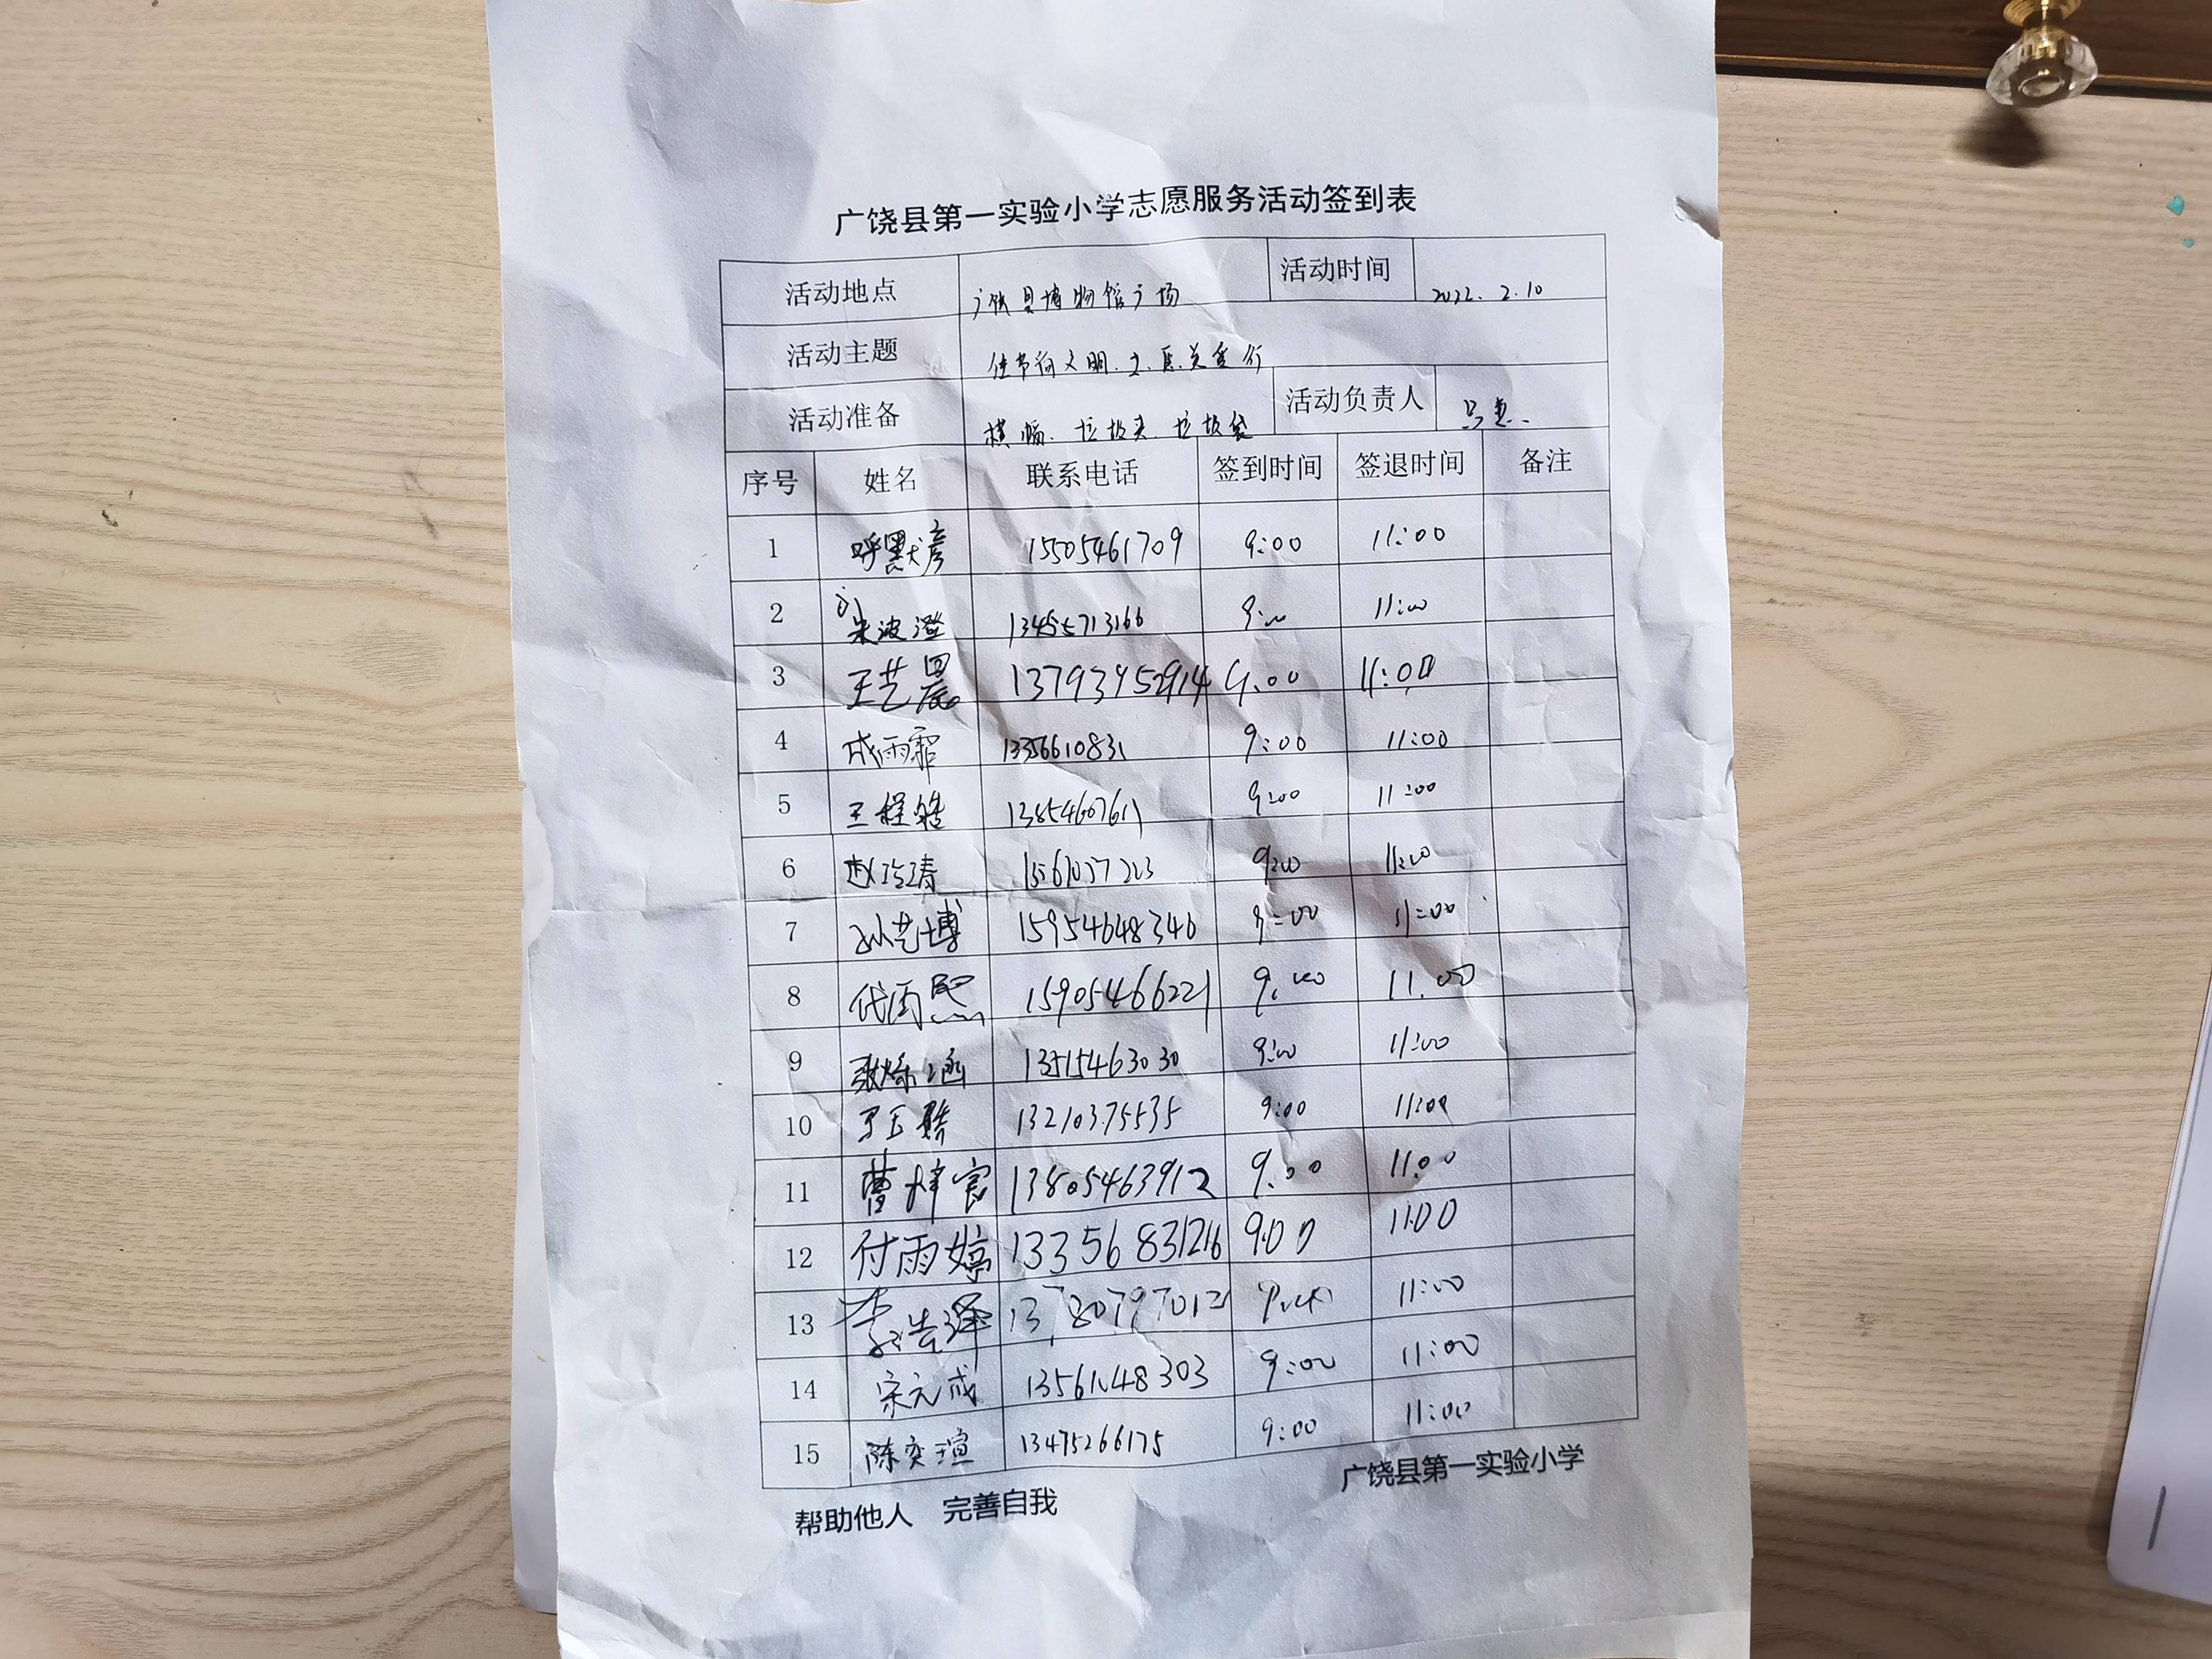 广饶县第一实验小学志愿服务活动签到表
活动地点 广饶县博物馆广场 活动时间 2022.2.10
活动主题 佳节尚文明
活动准备 横幅、垃圾夹、垃圾袋 活动负责人
序号 姓名 联系电话 签到时间 签退时间 备注
1 呼默彦 15505461709 9:00 11:00
2 波澄 13455713166 9:00 11:00
3 王艺晨 13793952914 9:00 11:00
4 成雨霏 13356610831 9:00 11:00
5 王程皓 13854607611 9:00 11:00
6 赵 9:00 11:00
7 孙艺博 15954648346 9:00 11:00
8 代雨熙 15905466221 9:00 11:00
9 涵 13515463030 9:00 11:00
10 13210375535 9:00 11:00
11 曹梓宸 13805463912 9:00 11:00
12 付雨婷 13356831216 9:00 11:00
13 李浩泽 13780797012 9:00 11:00
14 宋元成 13561048303 9:00 11:00
15 陈奕瑄 13475266175 9:00 11:00
帮助他人 完善自我 广饶县第一实验小学